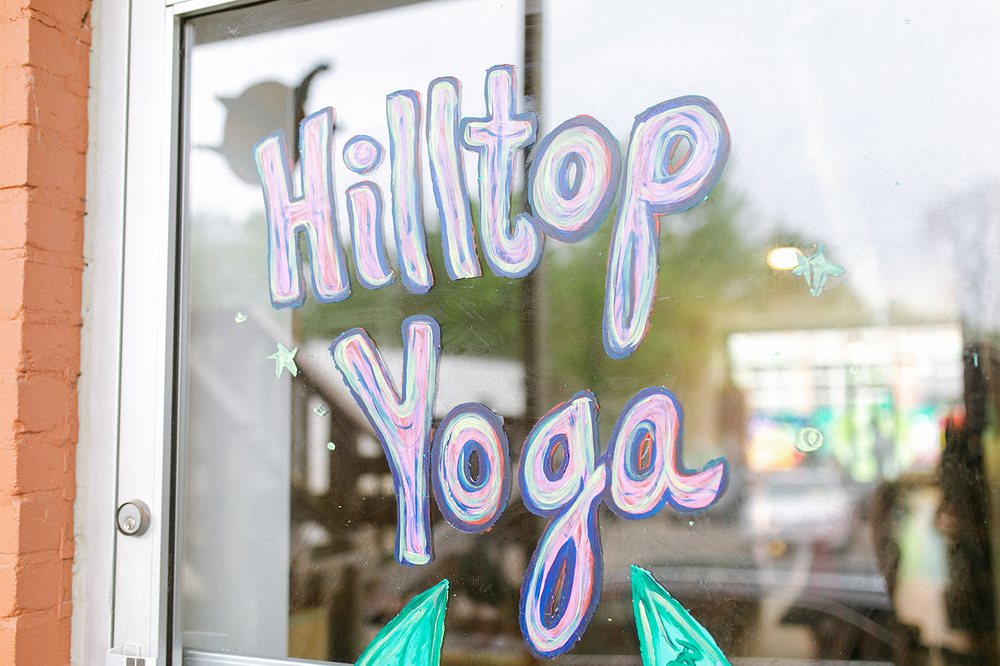 Hilltop
Yoga